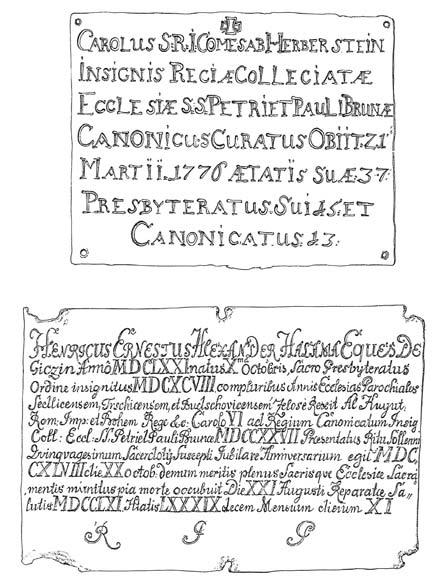 CAROLUS S:R:I:COMES AB HERBERSTEIN
INSIGNIS REGIÆ COLLECIATÆ
ECCLESIÆ S:S:PETRI ET PAULI BRUNÆ
CANONICUS CURATUS OBIIT.21
MARTII.1776 ÆTATIS SUÆ:37:
PRESBYTERATUS.SUI:15:ET
CANONICATUS:13:
HENRICUS ERNESTUS ALEXANDER HALAMA EQUES DE
Giczin Annô MDCLXXI natus X Octobris, Sacro Presbyteratus
Ordine insignitus MDCXCVIII compluribus Annis Ecclesias Parochiales
Sedlicensem, Trschicensem, et Budschovicensem Zelose Rexit Ab August,
Rom: Imp: et Bohem Rege &c: Carolo VI ad Regium Canonicatum Insig
Coll: Eccl: SS. Petri et Pauli Brunæ MDCCXXVII Præsentatus Ritu Sollenni
Quinquagesimum Sacerdotij Suscepti Jubilare Anniversarium egit MDC,
CXLVIII die XX octob. demum meritis plenus Sacrisque Ecclesiæ Sacra
mentis munitus pia morte occubuit Die XXI Augusti Reparatæ Sa,
lutis MDCCLXI Ætatis LXXXIX decem Mensium dierum XI
R I P